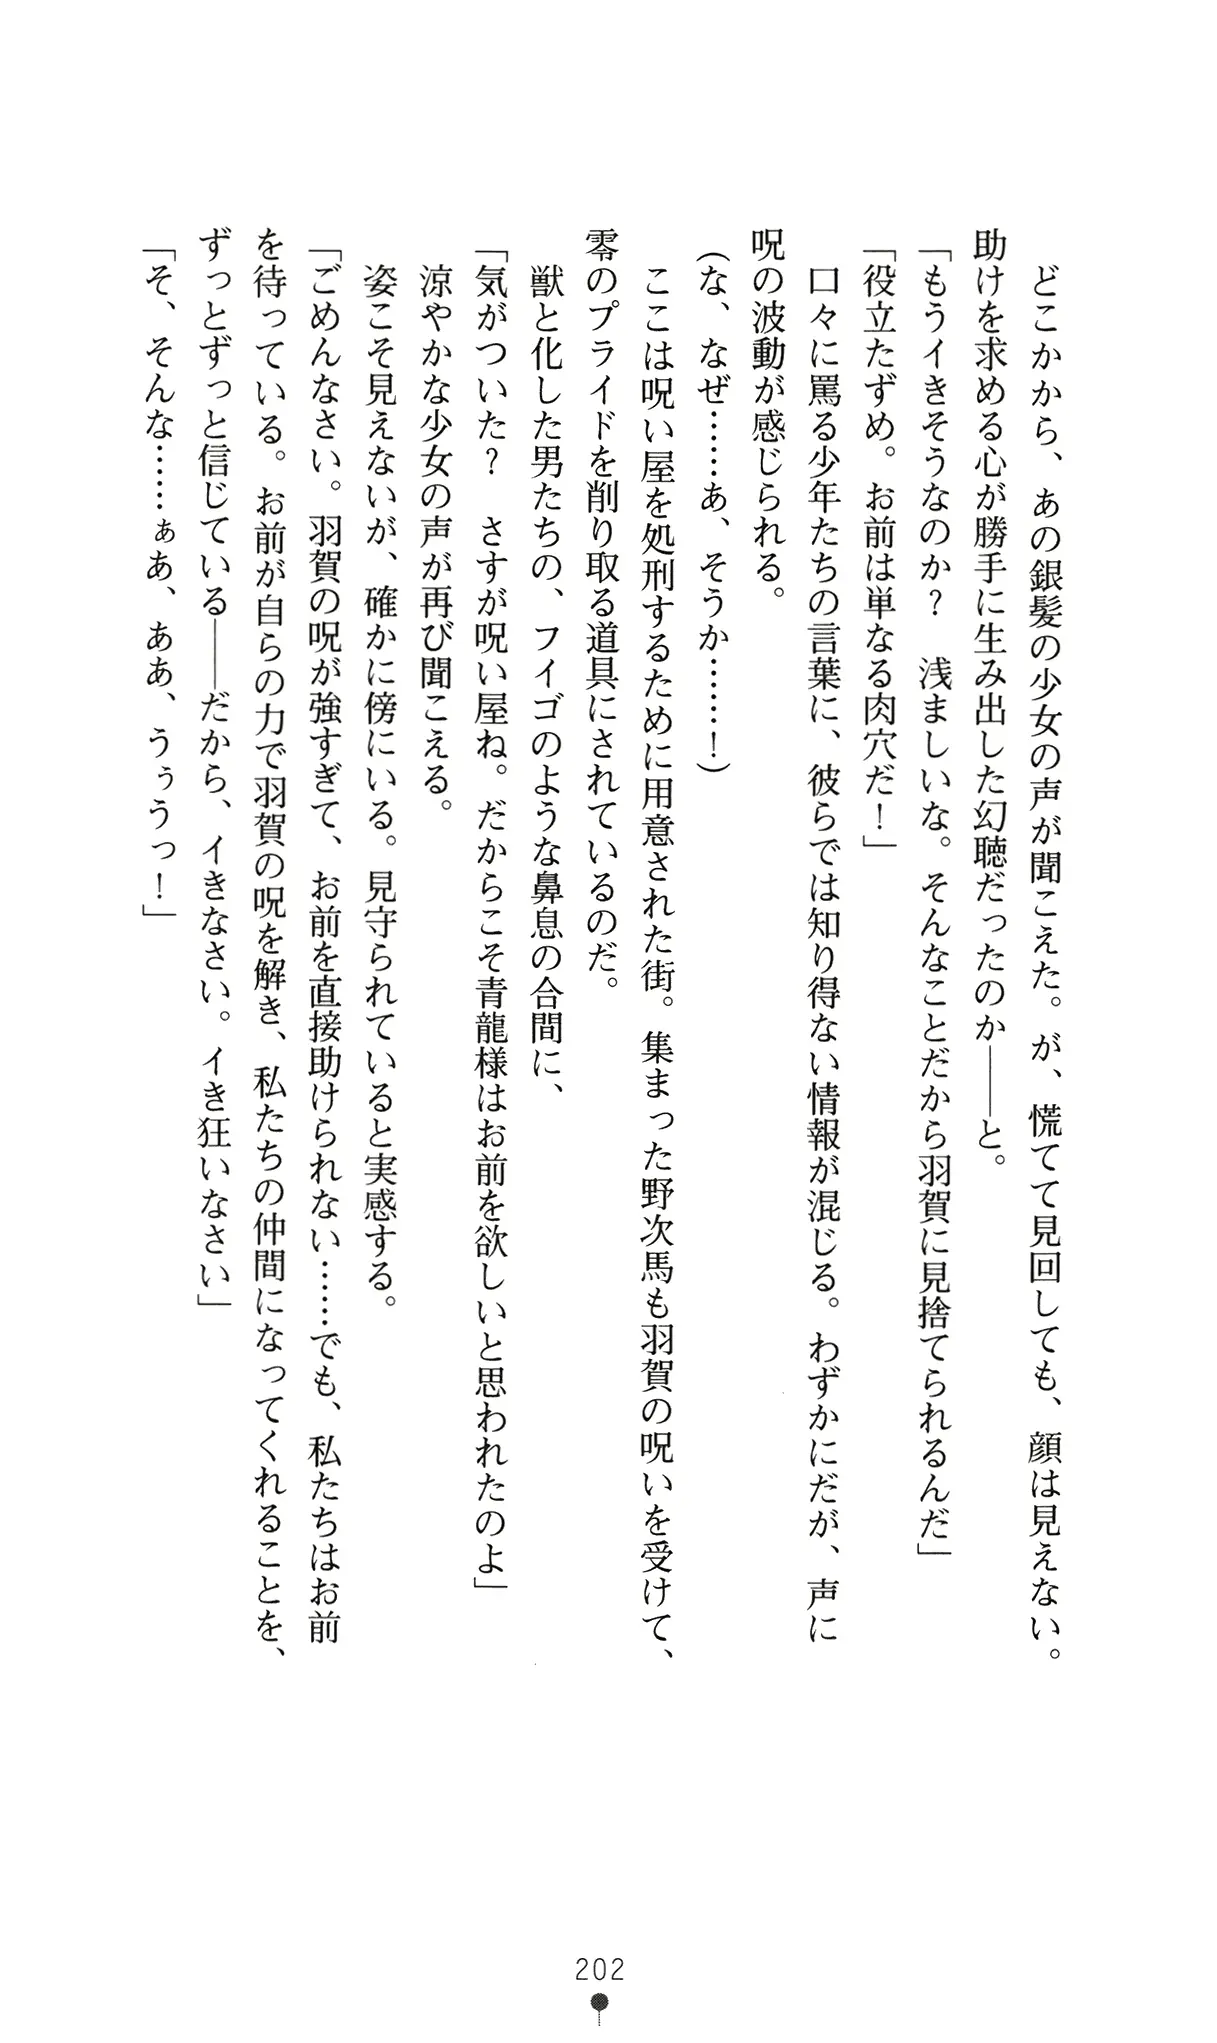 どこかから、あの銀髪の少女の声が聞こえた。が、慌てて見回しても、顔は見えない。
助けを求める心が勝手に生み出した幻聴だったのか――と。
「もうイきそうなのか？　浅ましいな。そんなことだから羽賀に見捨てられるんだ」
「役立たずめ。お前は単なる肉穴だ！」
口々に罵る少年たちの言葉に、彼らでは知り得ない情報が混じる。わずかにだが、声に
呪の波動が感じられる。
（な、なぜ……あ、そうか……！）
ここは呪い屋を処刑するために用意された街。集まった野次馬も羽賀の呪いを受けて、
零のプライドを削り取る道具にされているのだ。
獣と化した男たちの、フイゴのような鼻息の合間に、
「気がついた？　さすが呪い屋ね。だからこそ青龍様はお前を欲しいと思われたのよ」
涼やかな少女の声が再び聞こえる。
姿こそ見えないが、確かに傍にいる。見守られていると実感する。
「ごめんなさい。羽賀の呪が強すぎて、お前を直接助けられない……でも、私たちはお前
を待っている。お前が自らの力で羽賀の呪を解き、私たちの仲間になってくれることを、
ずっとずっと信じている――だから、イきなさい。イき狂いなさい」
「そ、そんな……ぁあ、ああ、うぅうっ！」
202